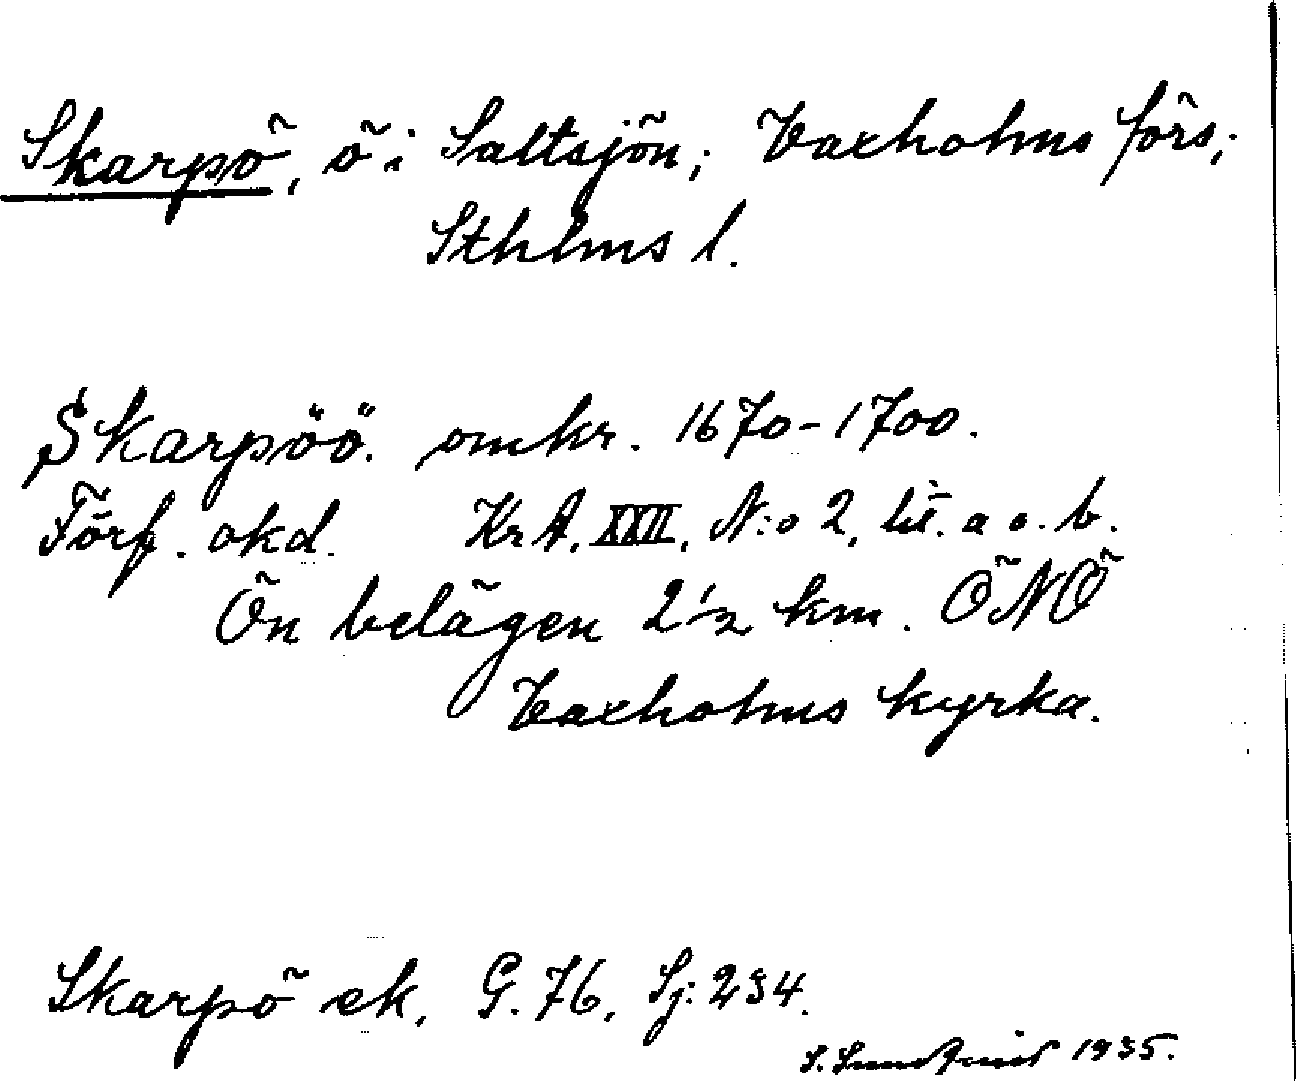 Skarpö, ö i Saltsjön; Vaxholms förs;
Sthlms l.
Skarpöö. omkr. 1670-1700.
Förf. okd. KrA. XXII, N:o 2, lit. a o. b.
Ön belägen 2 1/2 km. ÖNÖ
Vaxholms kyrka.
Skarpö ek, G. 76, Sj: 234.
S. Sundquist 1935.